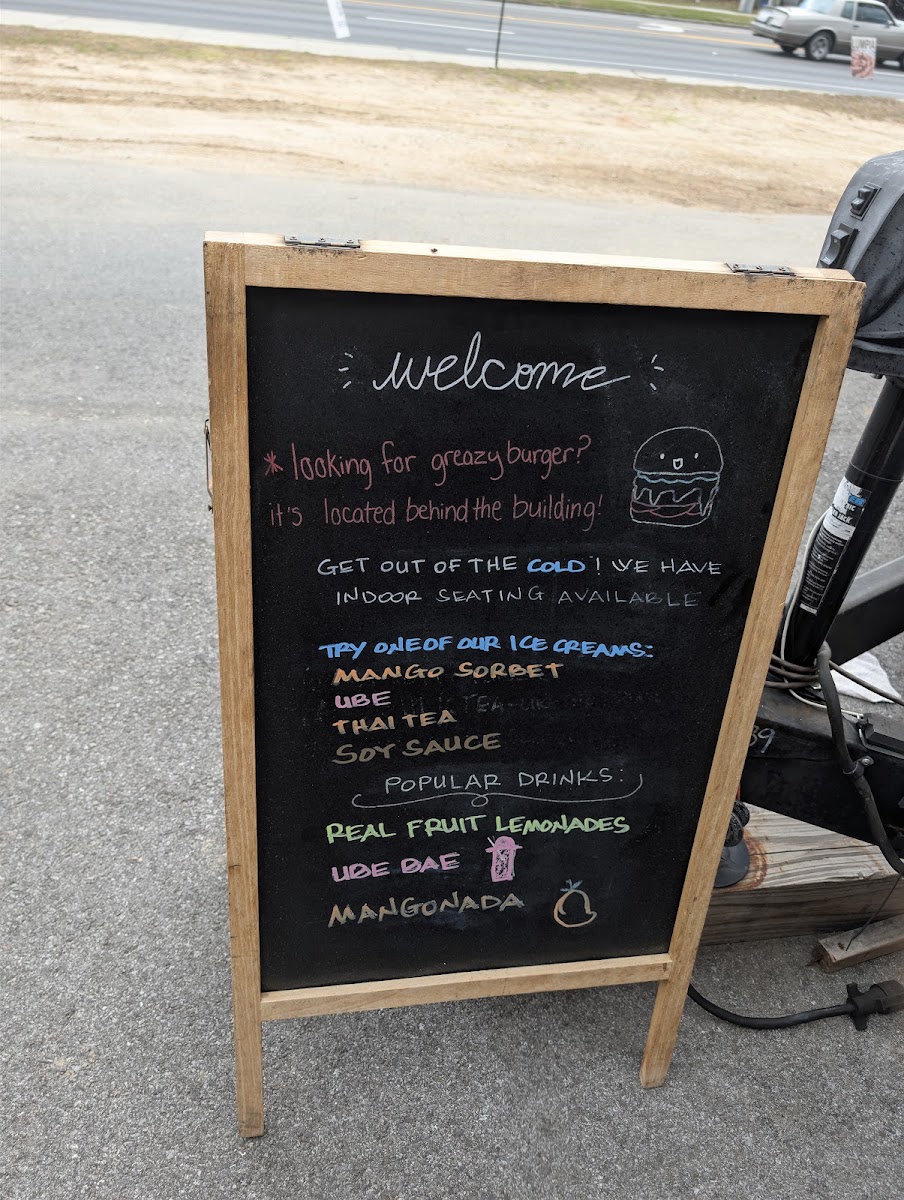 welcome
* looking for greazy burger?
it's located behind the building!
GET OUT OF THE COLD! WE HAVE
INDOOR SEATING AVAILABLE
TRY ONE OF OUR ICE CREAMS:
MANGO SORBET
UBE
THAI TEA
SOY SAUCE
POPULAR DRINKS:
REAL FRUIT LEMONADES
UBE BAE
MANGONADA